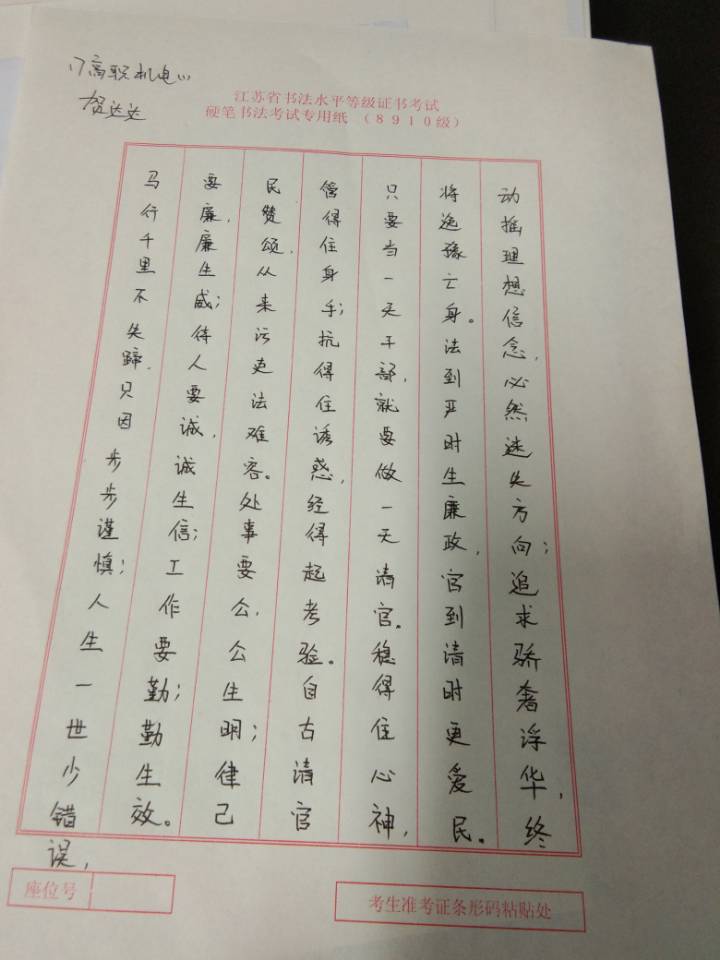 17高职机电
贺达达
江苏省书法水平等级证书考试
硬笔书法考试专用纸（8910级）
动摇理想信念，必然迷失方向；追求骄奢浮华，终
将逸豫亡身。法到严时生廉政，官到清时更爱民。
只要当一天干部，就要做一天清官。稳得住心神，
管得住身手；抗得住诱惑，经得起考验。自古清官
民赞颂，从来污吏法难容。处事要公，公生明；律己
要廉，廉生威；待人要诚，诚生信；工作要勤；勤生效。
马行千里不失蹄，只因步步谨慎；人生一世少错误，
座位号
考生准考证条形码粘贴处